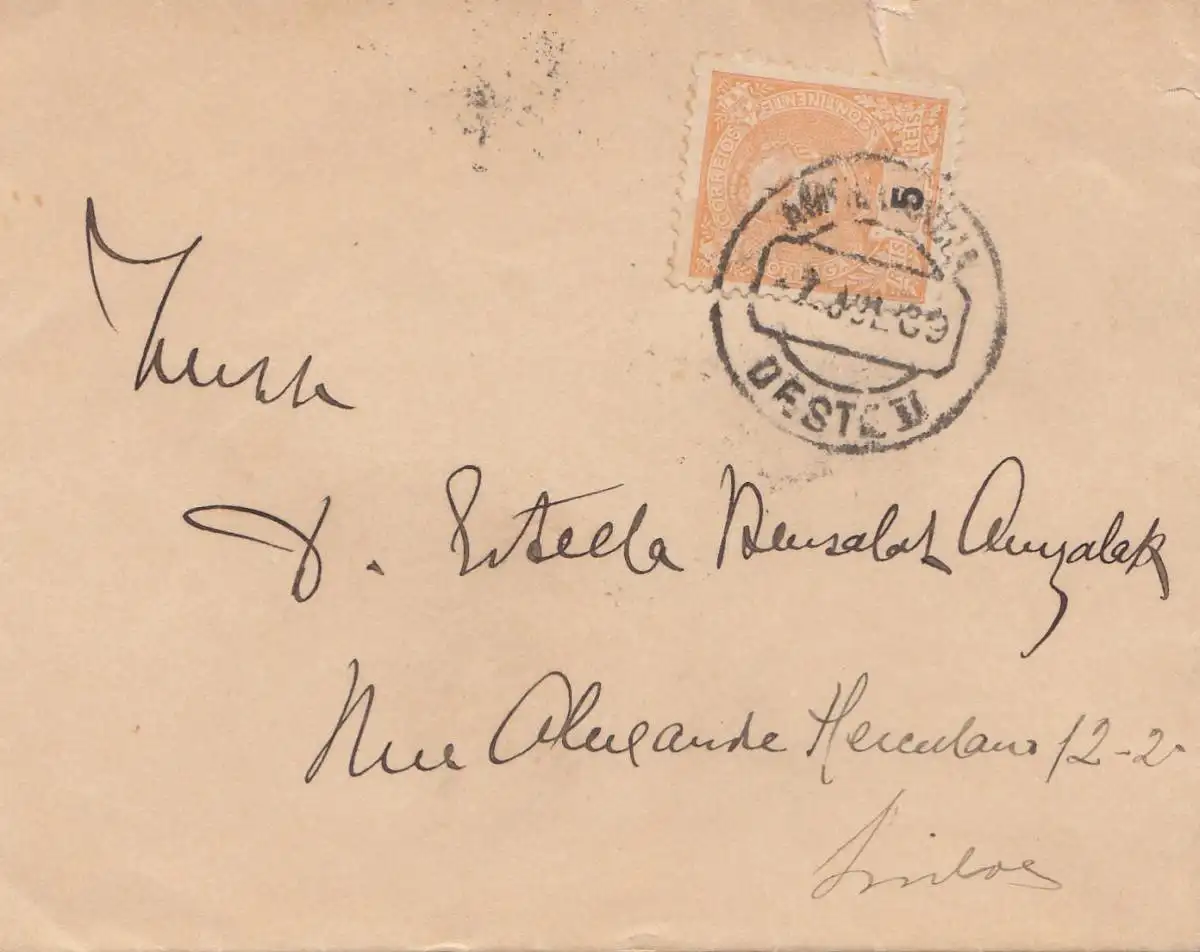 CORREIOS
CONTINENTE
REIS
5
7 JUL 09
DESTE
D. Estella Bensabat Amzalak
Rua Alexandre Herculano 12-2º
Lisboa